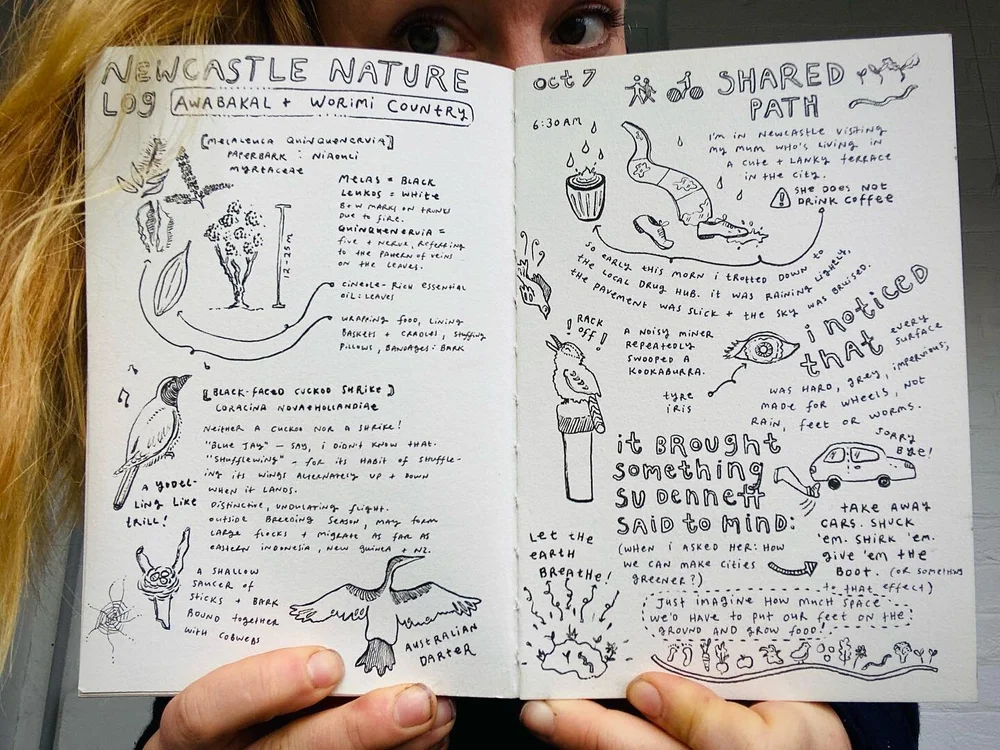 NEWCASTLE NATURE
LOG AWABAKAL + WORIMI COUNTRY
[MELALEUCA QUINQUENERVIA]
PAPERBARK : NIAOULI
MYRTACEAE
MELAS = BLACK
LEUKOS = WHITE
B+W MARKS ON TRUNKS
DUE TO FIRE.
QUINQUENERVIA =
FIVE + NERVE, REFERRING
TO THE PATTERN OF VEINS
ON THE LEAVES.
12-25 M
CINEOLE-RICH ESSENTIAL
OIL: LEAVES
WRAPPING FOOD, LINING
BASKETS + CRADLES, STUFFING
PILLOWS, BANDAGES: BARK
[BLACK-FACED CUCKOO SHRIKE]
CORACINA NOVAEHOLLANDIAE
NEITHER A CUCKOO NOR A SHRIKE!
"BLUE JAY" - SAY, I DIDN'T KNOW THAT.
"SHUFFLEWING" - FOR ITS HABIT OF SHUFFLE-
ING ITS WINGS ALTERNATELY UP + DOWN
WHEN IT LANDS.
DISTINCTIVE, UNDULATING FLIGHT.
OUTSIDE BREEDING SEASON, MAY FORM
LARGE FLOCKS + MIGRATE AS FAR AS
EASTERN INDONESIA, NEW GUINEA + NZ.
A YODEL-
LING LIKE
TRILL!
A SHALLOW
SAUCER OF
STICKS + BARK
BOUND TOGETHER
WITH COBWEBS
AUSTRALIAN
DARTER
OCT 7
SHARED
PATH
6:30AM
I'M IN NEWCASTLE VISITING
MY MUM WHO'S LIVING IN
A CUTE + LANKY TERRACE
IN THE CITY.
! SHE DOES NOT
DRINK COFFEE
SO EARLY THIS MORN I TROTTED DOWN TO
THE LOCAL DRUG HUB. IT WAS RAINING LIGHTLY,
THE PAVEMENT WAS SLICK + THE SKY WAS BRUISED.
! RACK
OFF!
A NOISY MINER
REPEATEDLY
SWOOPED A
KOOKABURRA.
TYRE
IRIS
I NOTICED
THAT EVERY
SURFACE
WAS HARD, GREY, IMPERVIOUS;
MADE FOR WHEELS, NOT
RAIN, FEET OR WORMS.
IT BROUGHT
SOMETHING
SU DENNETT
SAID TO MIND:
(WHEN I ASKED HER: HOW
WE CAN MAKE CITIES
GREENER?)
SORRY
BYE!
TAKE AWAY
CARS. SHUCK
'EM. SHIRK 'EM.
GIVE 'EM THE
BOOT. (OR SOMETHING
TO THAT EFFECT)
LET THE
EARTH
BREATHE!
JUST IMAGINE HOW MUCH SPACE
WE'D HAVE TO PUT OUR FEET ON THE
GROUND AND GROW FOOD!